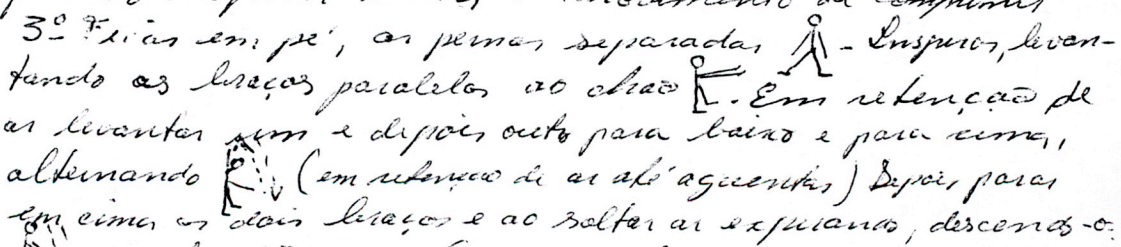 3º Ficar em pé, as pernas separadas - Inspirar, levan-
tando os braços paralelos ao chão. Em retenção de
ar levantar um e depois outro para baixo e para cima,
alternando (em retenção de ar até aguentar) Depois parar
em cima os dois braços e ao soltar ar expirando, descend-o